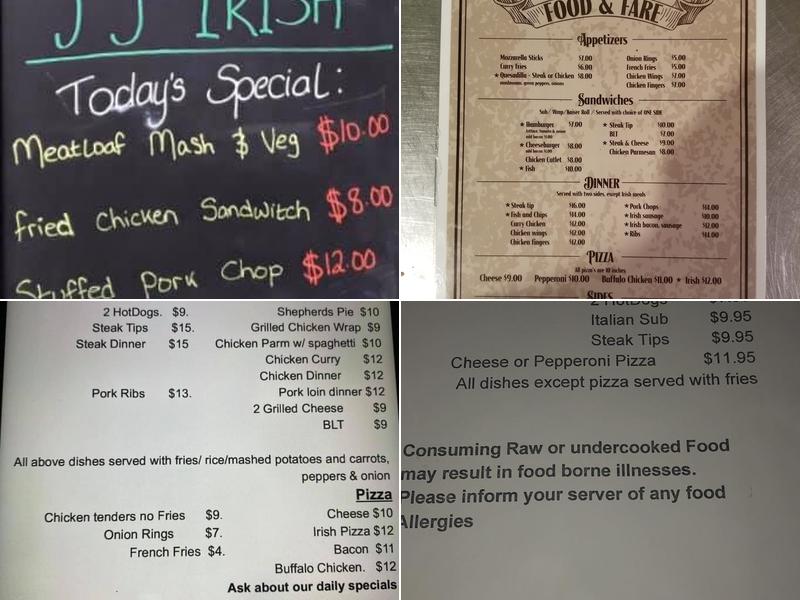 JJ IRISH
Today's Special:
Meatloaf Mash & Veg $10.00
fried chicken Sandwitch $8.00
Stuffed Pork Chop $12.00
FOOD & FARE
Appetizers
Mozzarella Sticks $7.00
Curry Fries $6.00
★ Quesadilla - Steak or Chicken $8.00
mushrooms, green peppers, onions
Onion Rings $5.00
French Fries $5.00
Chicken Wings $7.00
Chicken Fingers $7.00
Sandwiches
Sub/ Wrap/Kaiser Roll / Served with choice of ONE SIDE
★ Hamburger $7.00
lettuce, tomato & onion
add bacon $1.00
★ Cheeseburger $8.00
add bacon $1.00
Chicken Cutlet $8.00
★ Fish $10.00
★ Steak Tip $10.00
BLT $7.00
★ Steak & Cheese $9.00
Chicken Parmesan $8.00
DINNER
Served with two sides, except Irish meals
★ Steak tip $16.00
★ Fish and Chips $14.00
Curry Chicken $12.00
Chicken wings $12.00
Chicken fingers $12.00
★ Pork Chops $14.00
★ Irish sausage $10.00
★ Irish bacon, sausage $12.00
★ Ribs $14.00
PIZZA
All pizza's are 10 inches
Cheese $9.00 Pepperoni $10.00 Buffalo Chicken $11.00 ★ Irish $12.00
SIDES
2 HotDogs. $9.
Steak Tips $15.
Steak Dinner $15
Pork Ribs $13.
Shepherds Pie $10
Grilled Chicken Wrap $9
Chicken Parm w/ spaghetti $10
Chicken Curry $12
Chicken Dinner $12
Pork loin dinner $12
2 Grilled Cheese $9
BLT $9
All above dishes served with fries/ rice/mashed potatoes and carrots,
peppers & onion
Pizza
Chicken tenders no Fries $9.
Onion Rings $7.
French Fries $4.
Cheese $10
Irish Pizza $12
Bacon $11
Buffalo Chicken. $12
Ask about our daily specials
2 HotDogs
Italian Sub $9.95
Steak Tips $9.95
Cheese or Pepperoni Pizza $11.95
All dishes except pizza served with fries
Consuming Raw or undercooked Food
may result in food borne illnesses.
Please inform your server of any food
Allergies